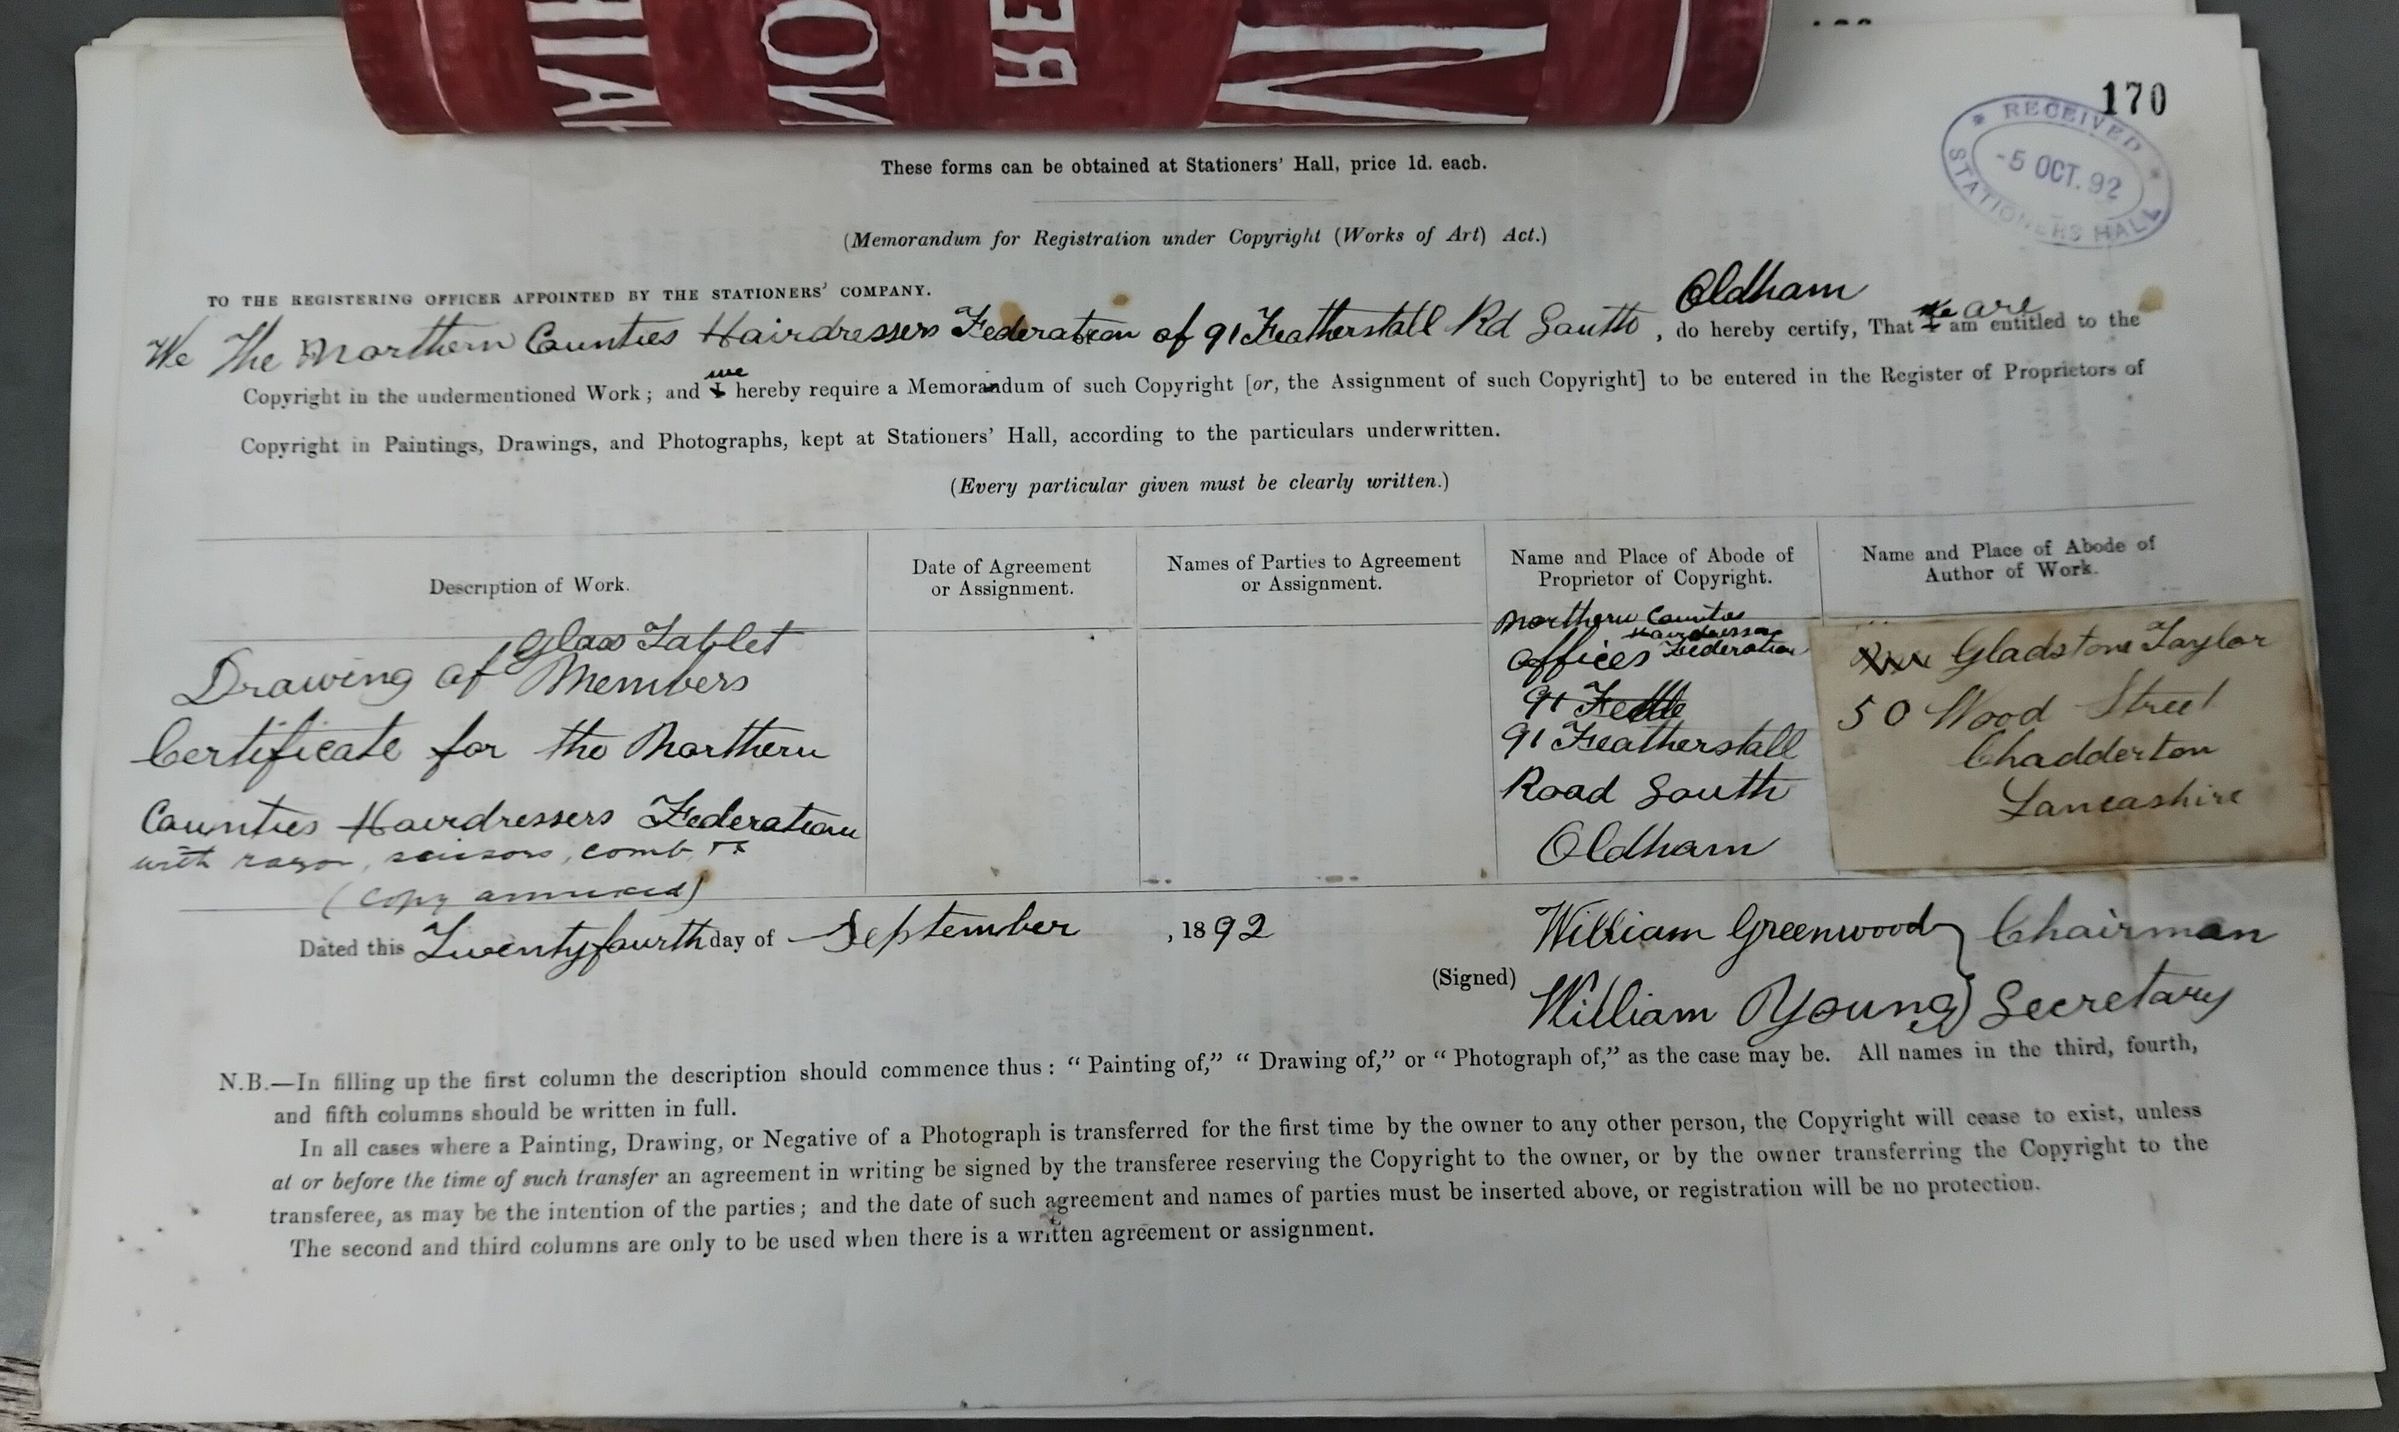 170
RECEIVED
-5 OCT. 92
STATIONERS HALL
These forms can be obtained at Stationers' Hall, price 1d. each.
(Memorandum for Registration under Copyright (Works of Art) Act.)
TO THE REGISTERING OFFICER APPOINTED BY THE STATIONERS' COMPANY.
Oldham
We The Northern Counties Hairdressers Federation of 91 Featherstall Rd South, do hereby certify, That I we am are entitled to the
Copyright in the undermentioned Work; and I we hereby require a Memorandum of such Copyright [or, the Assignment of such Copyright] to be entered in the Register of Proprietors of
Copyright in Paintings, Drawings, and Photographs, kept at Stationers' Hall, according to the particulars underwritten.
(Every particular given must be clearly written.)
Description of Work.
Date of Agreement
or Assignment.
Names of Parties to Agreement
or Assignment.
Name and Place of Abode of
Proprietor of Copyright.
Name and Place of Abode of
Author of Work.
Glass Tablet
Drawing of Members
Certificate for the Northern
Counties Hairdressers Federation
with razor, scissors, comb,
(copy annexed)
Northern Counties
Hairdressers
Offices Federation
91
91 Featherstall
Road South
Oldham
Gladstone Taylor
50 Wood Street
Chadderton
Lancashire
Dated this Twentyfourth day of September, 1892
William Greenwood Chairman
(Signed)
William Young Secretary
N.B.—In filling up the first column the description should commence thus: "Painting of," "Drawing of," or "Photograph of," as the case may be. All names in the third, fourth,
and fifth columns should be written in full.
In all cases where a Painting, Drawing, or Negative of a Photograph is transferred for the first time by the owner to any other person, the Copyright will cease to exist, unless
at or before the time of such transfer an agreement in writing be signed by the transferee reserving the Copyright to the owner, or by the owner transferring the Copyright to the
transferee, as may be the intention of the parties; and the date of such agreement and names of parties must be inserted above, or registration will be no protection.
The second and third columns are only to be used when there is a written agreement or assignment.